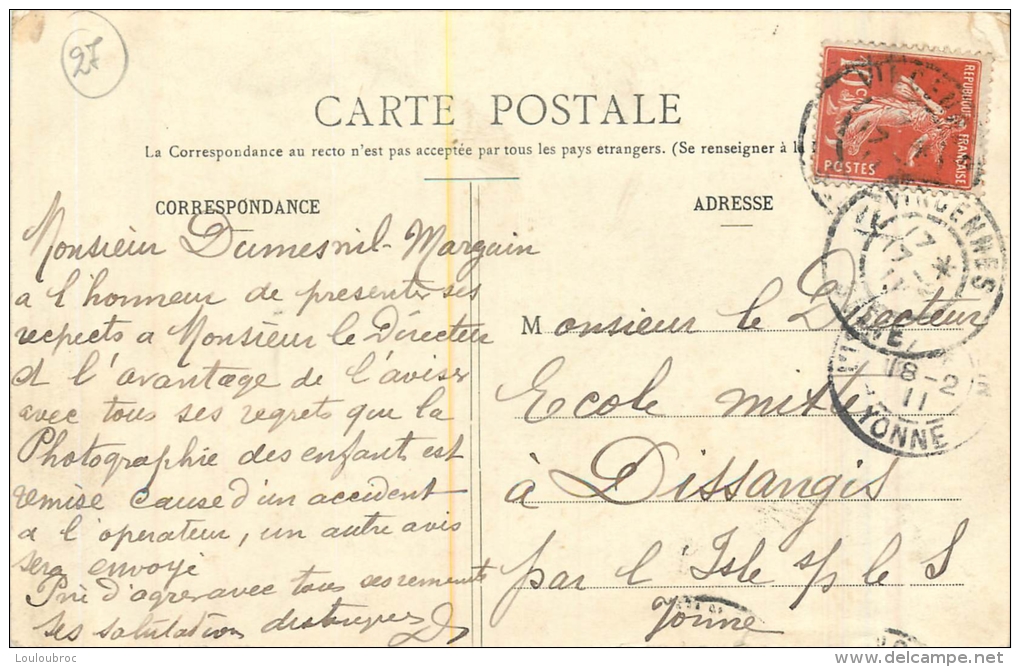 27
CARTE POSTALE
La Correspondance au recto n'est pas acceptée par tous les pays etrangers. (Se renseigner à la
CORRESPONDANCE
Monsieur Dumesnil-Margain
a l'honneur de presenter ses
respects a Monsieur le Directeur
et l'avantage de l'aviser
avec tous ses regrets que la
Photographie des enfants est
remise cause d'un accident
a l'operateur, un autre avis
sera envoyé
Prie d'agréer avec tous
ses salutation distinguées
ADRESSE
REPUBLIQUE FRANÇAISE
10 c
POSTES
VINCENNES
17
18-2
11
YONNE
Monsieur le Directeur
Ecole mixte
à Dissangis
par l'Isle s/ le S
Yonne
© Louloubroc
delcampe.net